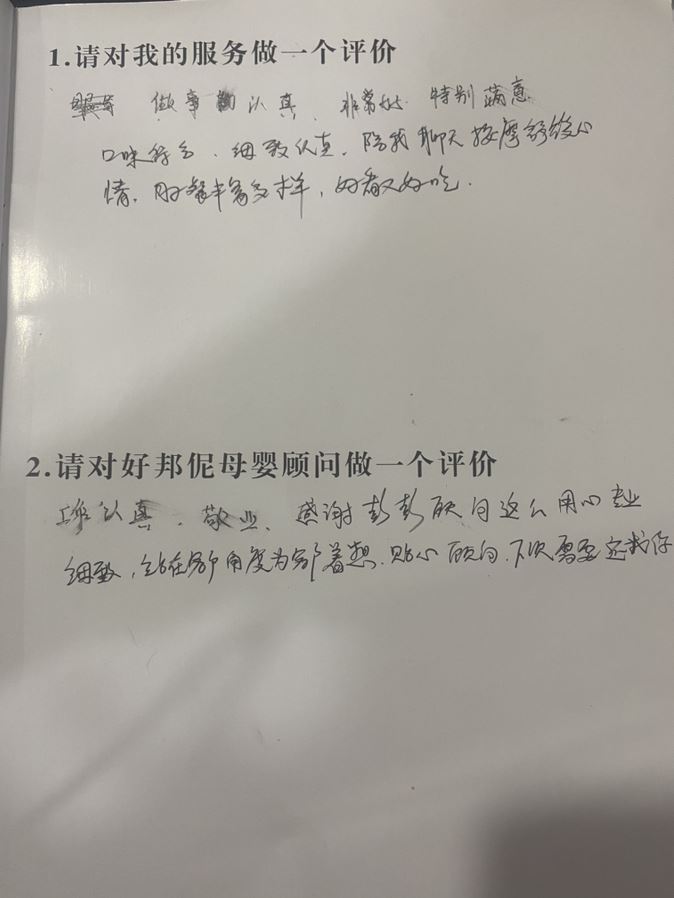 1.请对我的服务做一个评价
做事认真、非常好、特别满意
口味符合、细致认真、陪我聊天按摩舒缓心
情、月子餐丰富多样，好看又好吃.
2.请对好邦伲母婴顾问做一个评价
工作认真、敬业、感谢彭彭顾问这么用心专业
细致，站在客户角度为客户着想、贴心顾问、下次需要还找你